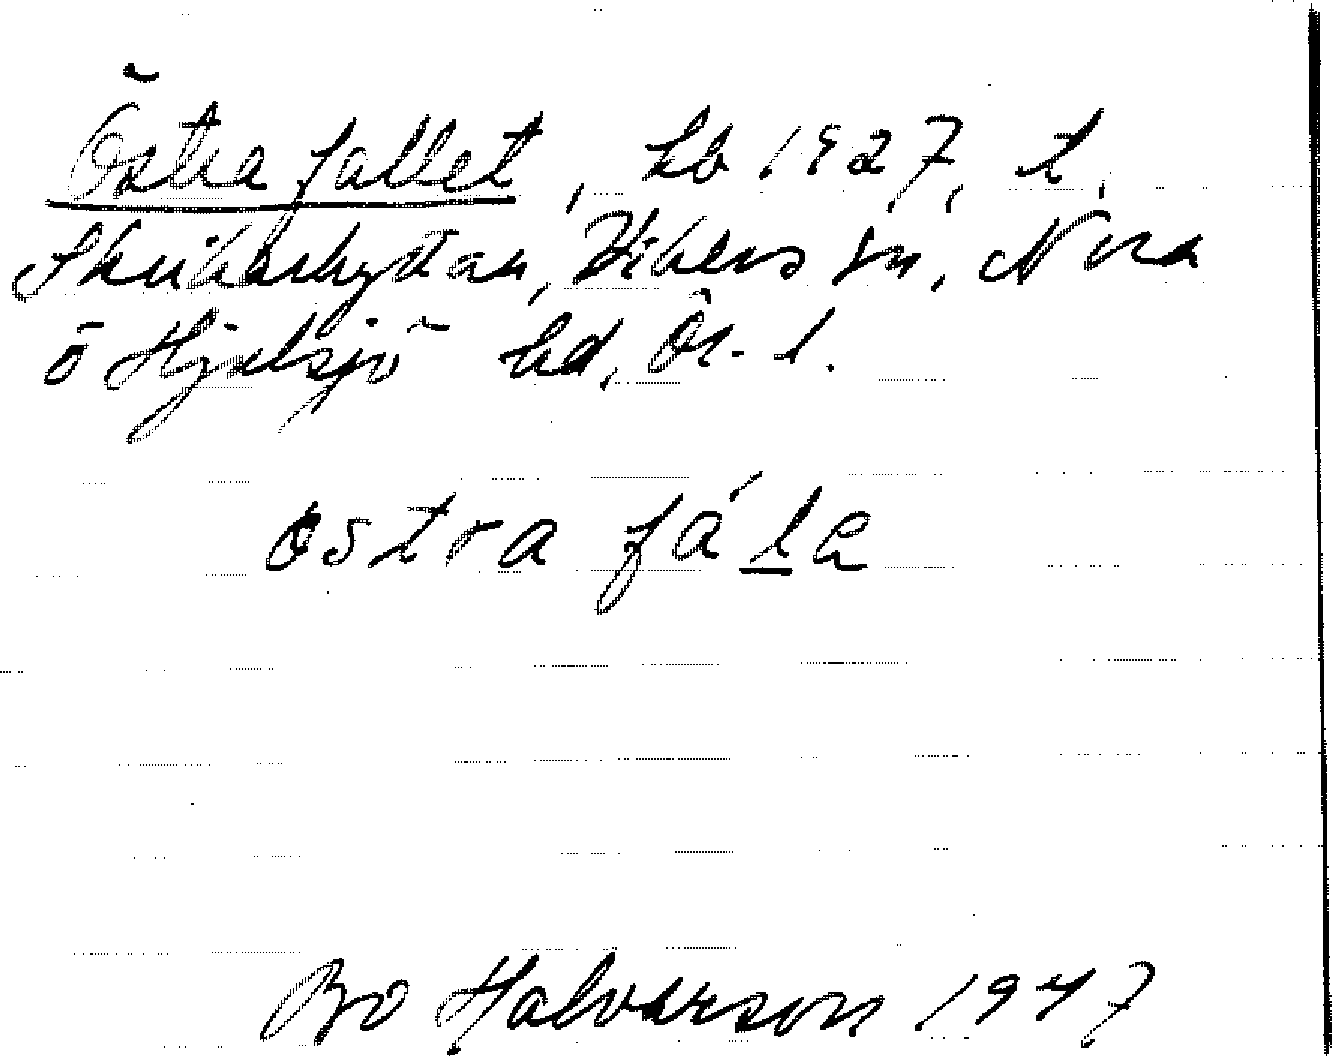 Östra fallet, hb 1927, t.
Skrikarhyttan, Vikers sn, Nora
o Hjulsjö hd, Ör. l.
östra fá la
Bo Halvarson 1947